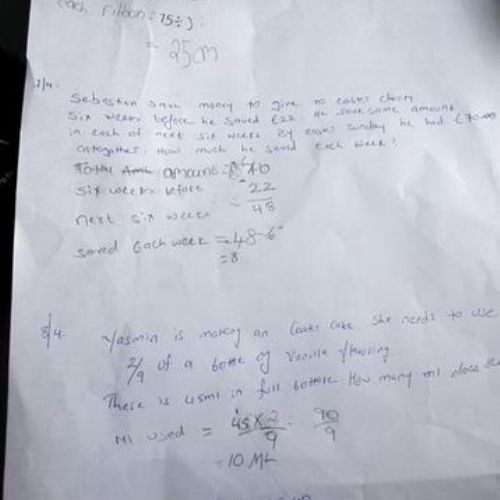 each ribbon = 75÷3
= 25cm
7/4.
Sebastian save money to give to easter charity
Six weeks before he saved £22. He save same amount
in each of next six weeks By easter sunday he had £70.00
altogether. How much he saved each week?
amount = £70
Six weeks before - 22
next six weeks = 48
saved Each week = 48÷6
= 8
8/4.
Yasmin is making an cake she needs to use
2/9 of a bottle of Vanilla flavouring
There is 45ml in full bottle. How many ml does
Ml used = 45×2/9 90/9
= 10 ML